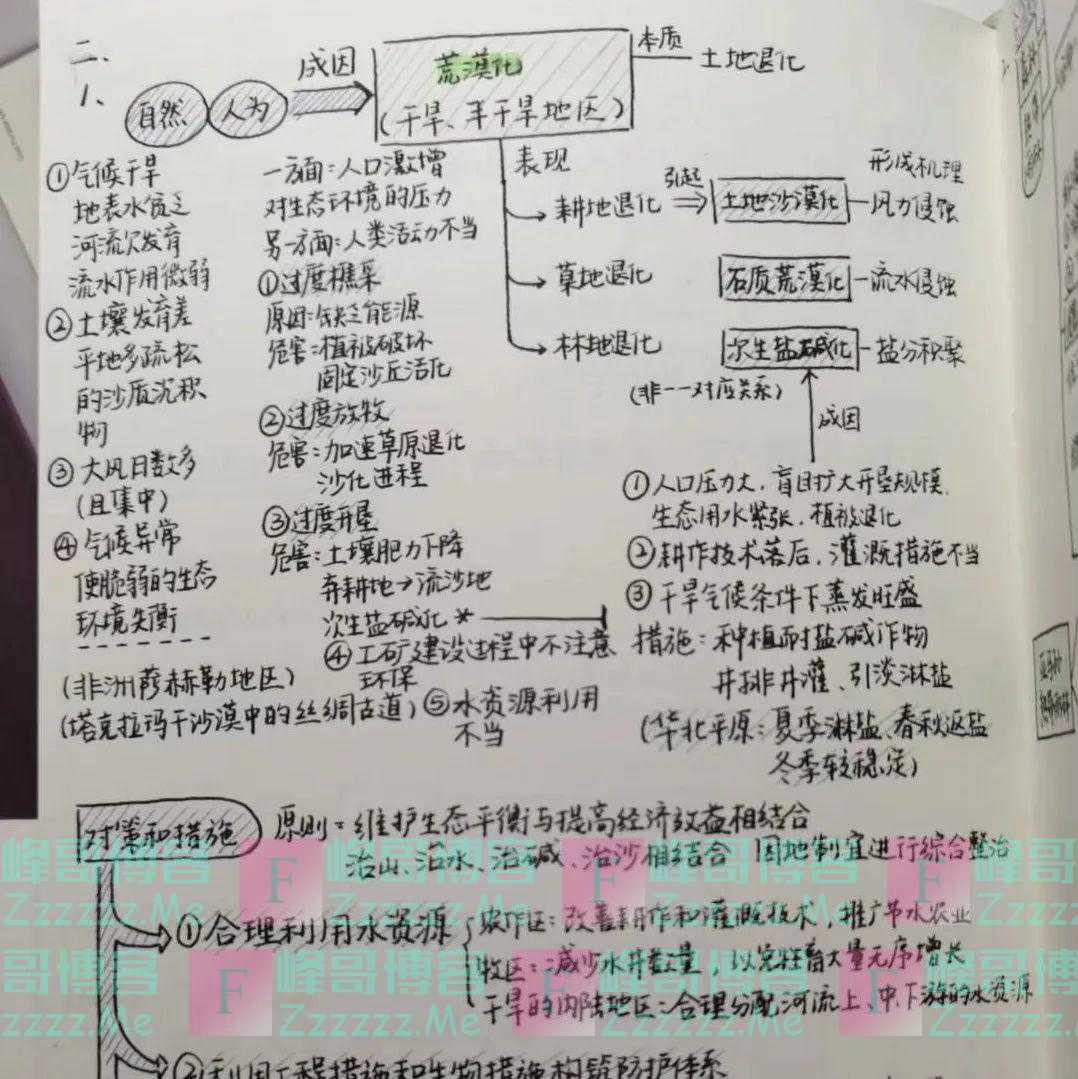 二、
1、
自然 人为
成因
荒漠化
(干旱、半干旱地区)
本质 土地退化
①气候干旱
地表水贫乏
河流欠发育
流水作用微弱
②土壤发育差
平地多疏松
的沙质沉积
物
③大风日数多
(且集中)
④气候异常
使脆弱的生态
环境失衡
(非洲萨赫勒地区)
(塔克拉玛干沙漠中的丝绸古道)
一方面:人口激增
对生态环境的压力
另一方面:人类活动不当
①过度樵采
原因:缺乏能源
危害:植被破坏
固定沙丘活化
②过度放牧
危害:加速草原退化
沙化进程
③过度开垦
危害:土壤肥力下降
弃耕地→流沙地
次生盐碱化*
④工矿建设过程中不注意
环保
⑤水资源利用
不当
表现
形成机理
耕地退化 引起 土地沙漠化 风力侵蚀
草地退化 石质荒漠化 流水侵蚀
林地退化 次生盐碱化 盐分积聚
(非一一对应关系)
成因
①人口压力大,盲目扩大开垦规模,
生态用水紧张,植被退化
②耕作技术落后,灌溉措施不当
③干旱气候条件下蒸发旺盛
措施:种植耐盐碱作物
井排井灌、引淡淋盐
(华北平原:夏季淋盐、春秋返盐
冬季较稳定)
对策和措施
原则:维护生态平衡与提高经济效益相结合
治山、治水、治碱、治沙相结合 因地制宜进行综合整治
①合理利用水资源
农作区:改善耕作和灌溉技术,推广节水农业
牧区:减少水井数量,以免牲畜大量无序增长
干旱的内陆地区:合理分配河流上、中、下游的水资源
②利用工程措施和生物措施构筑防护体系
峰哥博客
Zzzzzz.Me
F
峰哥博客
Zzzzzz.Me
F
峰哥博客
Zzzzzz.Me
F
峰哥博客
Zzzzzz.Me
F
峰哥博客
Zzzzzz.Me
F
峰哥博客
Zzzzzz.Me
F